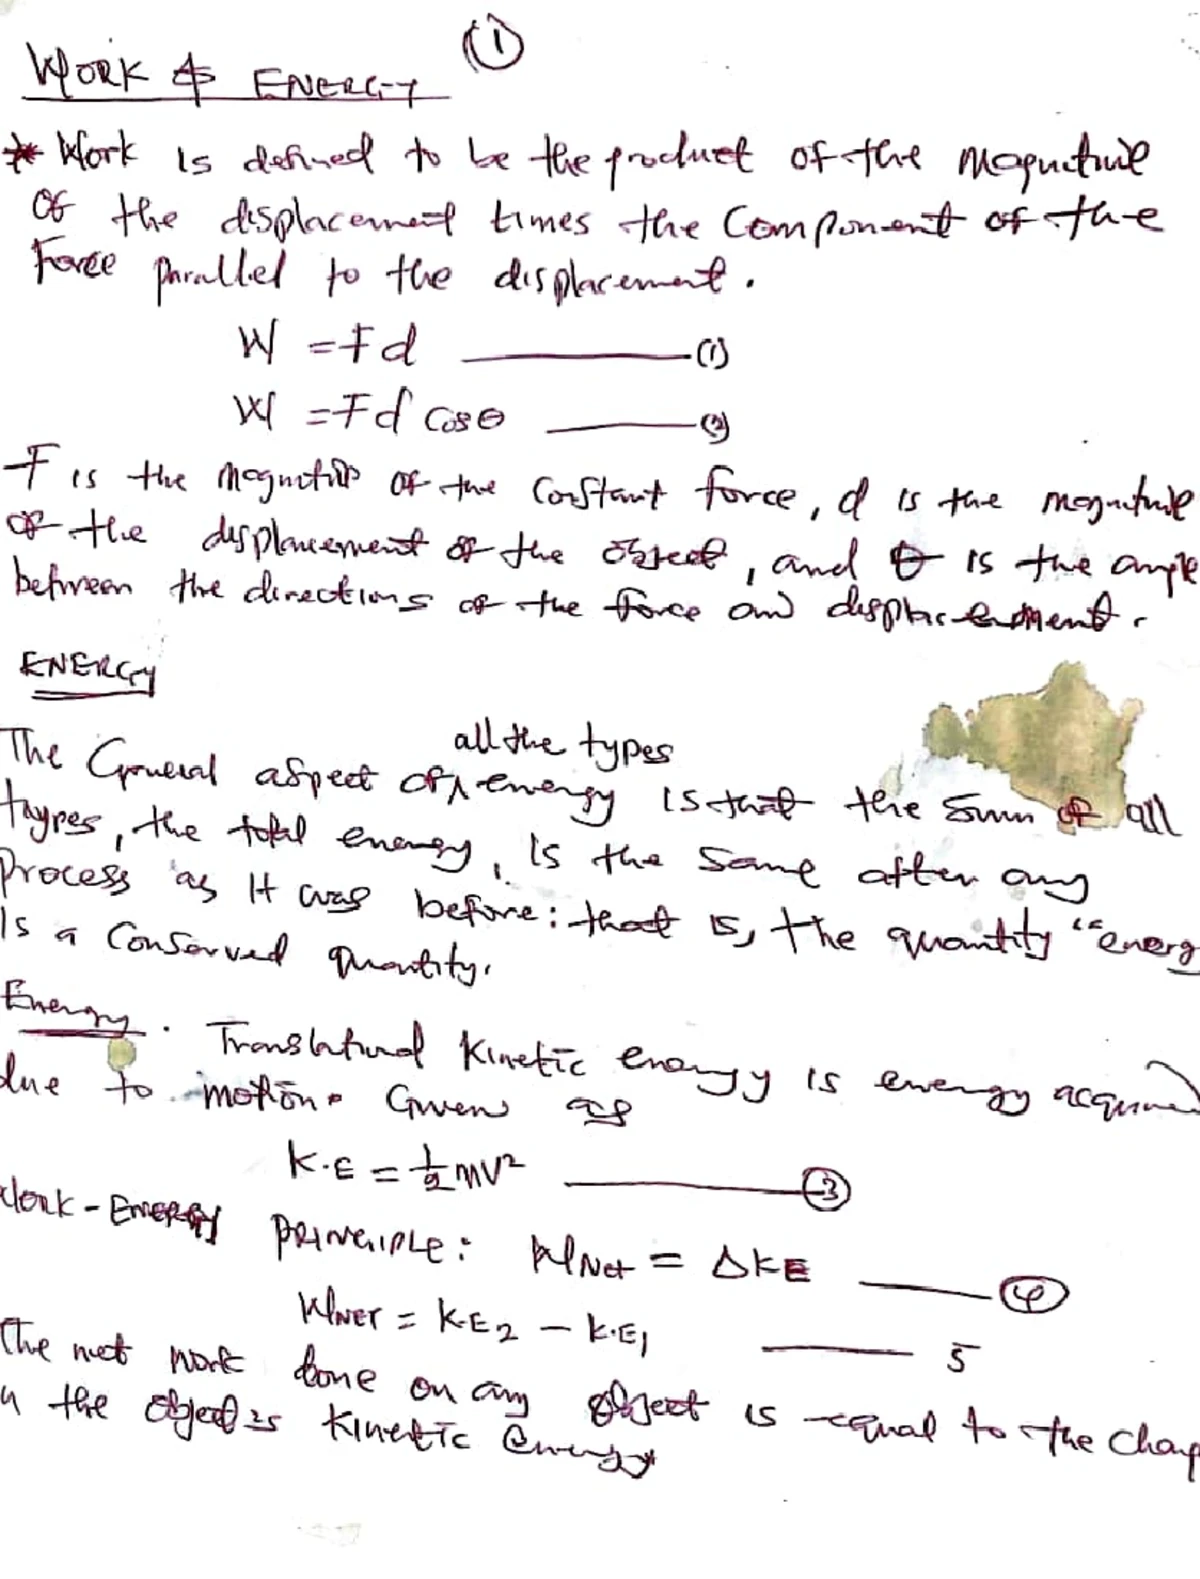 ①
WORK & ENERGY
* Work is defined to be the product of the magnitude
of the displacement times the component of the
Force parallel to the displacement.
W = Fd ——— (1)
W = Fd cos θ ——— (2)
F is the magnitude of the constant force, d is the magnitude
of the displacement of the object, and θ is the angle
between the directions of the force and displacement.
ENERGY
all the types
The General aspect of ∧ energy is that the sum of all
types, the total energy, is the same after any
process as it was before: that is, the quantity "energy
Is a Conserved Quantity.
Energy. Translational kinetic energy is energy acquired
due to motion. Given as
K.E = 1/2 mv² ——— ③
Work-ENERGY PRINCIPLE: WNet = ΔKE ——— ④
WNET = K.E2 − K.E1 ——— 5
The net work done on any object is equal to the chang
n the object's kinetic energy